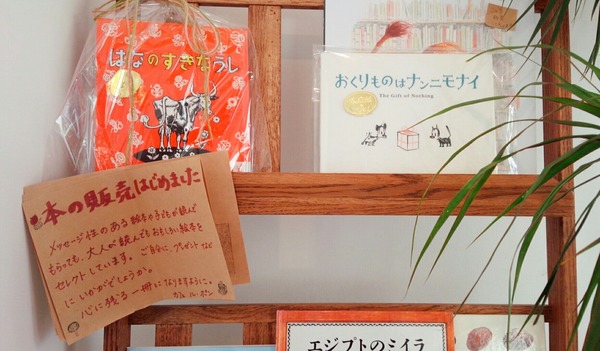 はなのすきなうし
おくりものはナンニモナイ
The Gift of Nothing
本の販売はじめました
メッセージ性のある絵本や子どもが読んで
もらっても、大人が読んでもおもしろい絵本を
セレクトしています。ご自分に、プレゼントなど
に いかがでしょうか。
心に残る一冊になりますように。
エジプトのミイラ